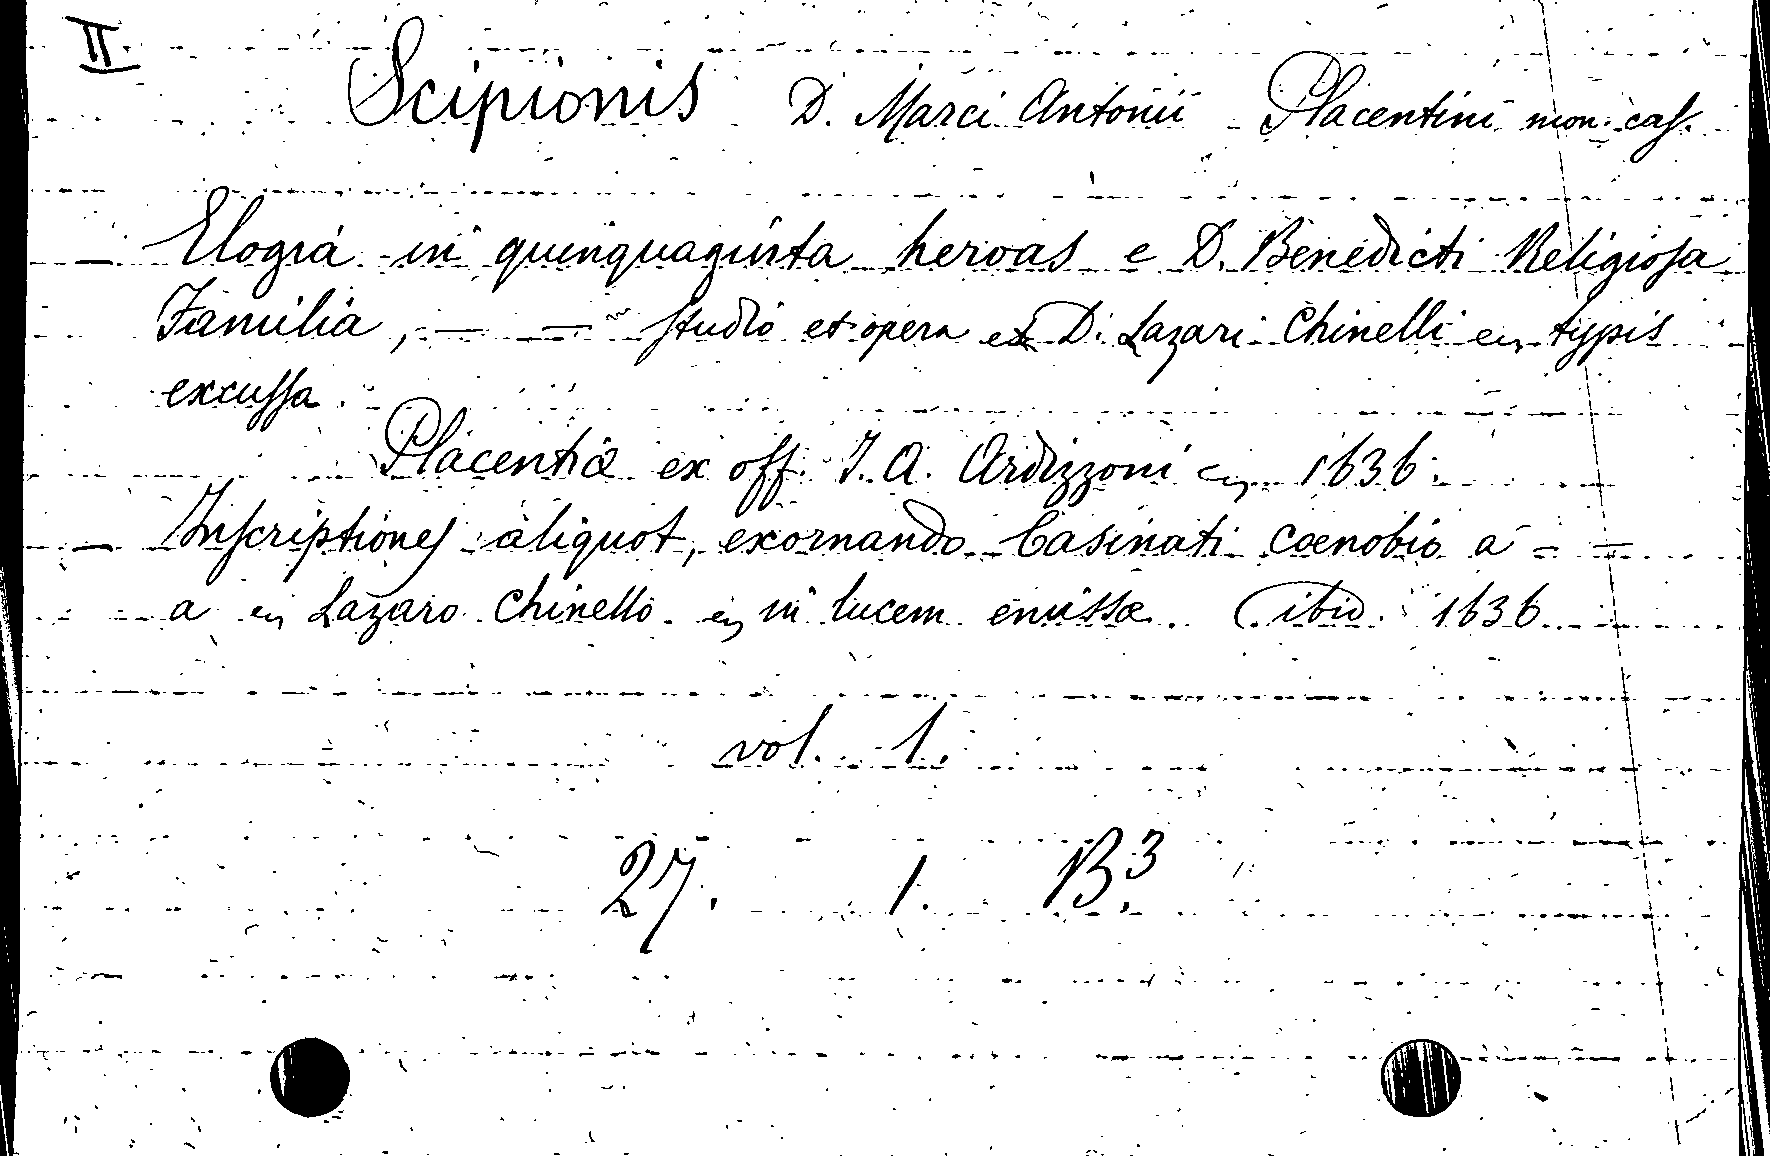 II.
Scipionis D. Marci Antonii Placentini mon. cas.
— Elogia in quinquaginta heroas e D. Benedicti Religiosa
Familia, — — studio et opera et D. Lazari Chinelli en typis
excussa.
Placentiæ ex off. I. A. Ardizzoni en 1636.
— Inscriptiones aliquot, exornando Casinati coenobio a — —
a en Lazaro Chinello en in lucem emissæ. Ibid. 1636
vol. 1.
27. 1. B³.